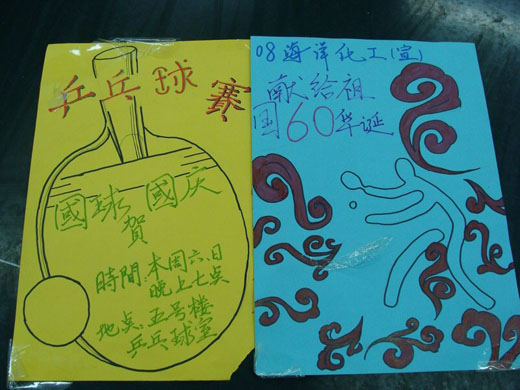 乒乓球賽
國球 國庆
賀
時間 本周六.日
晚上七点
地点 五号楼
乒乓球室
08海洋化工(宣)
献给祖
国60华诞